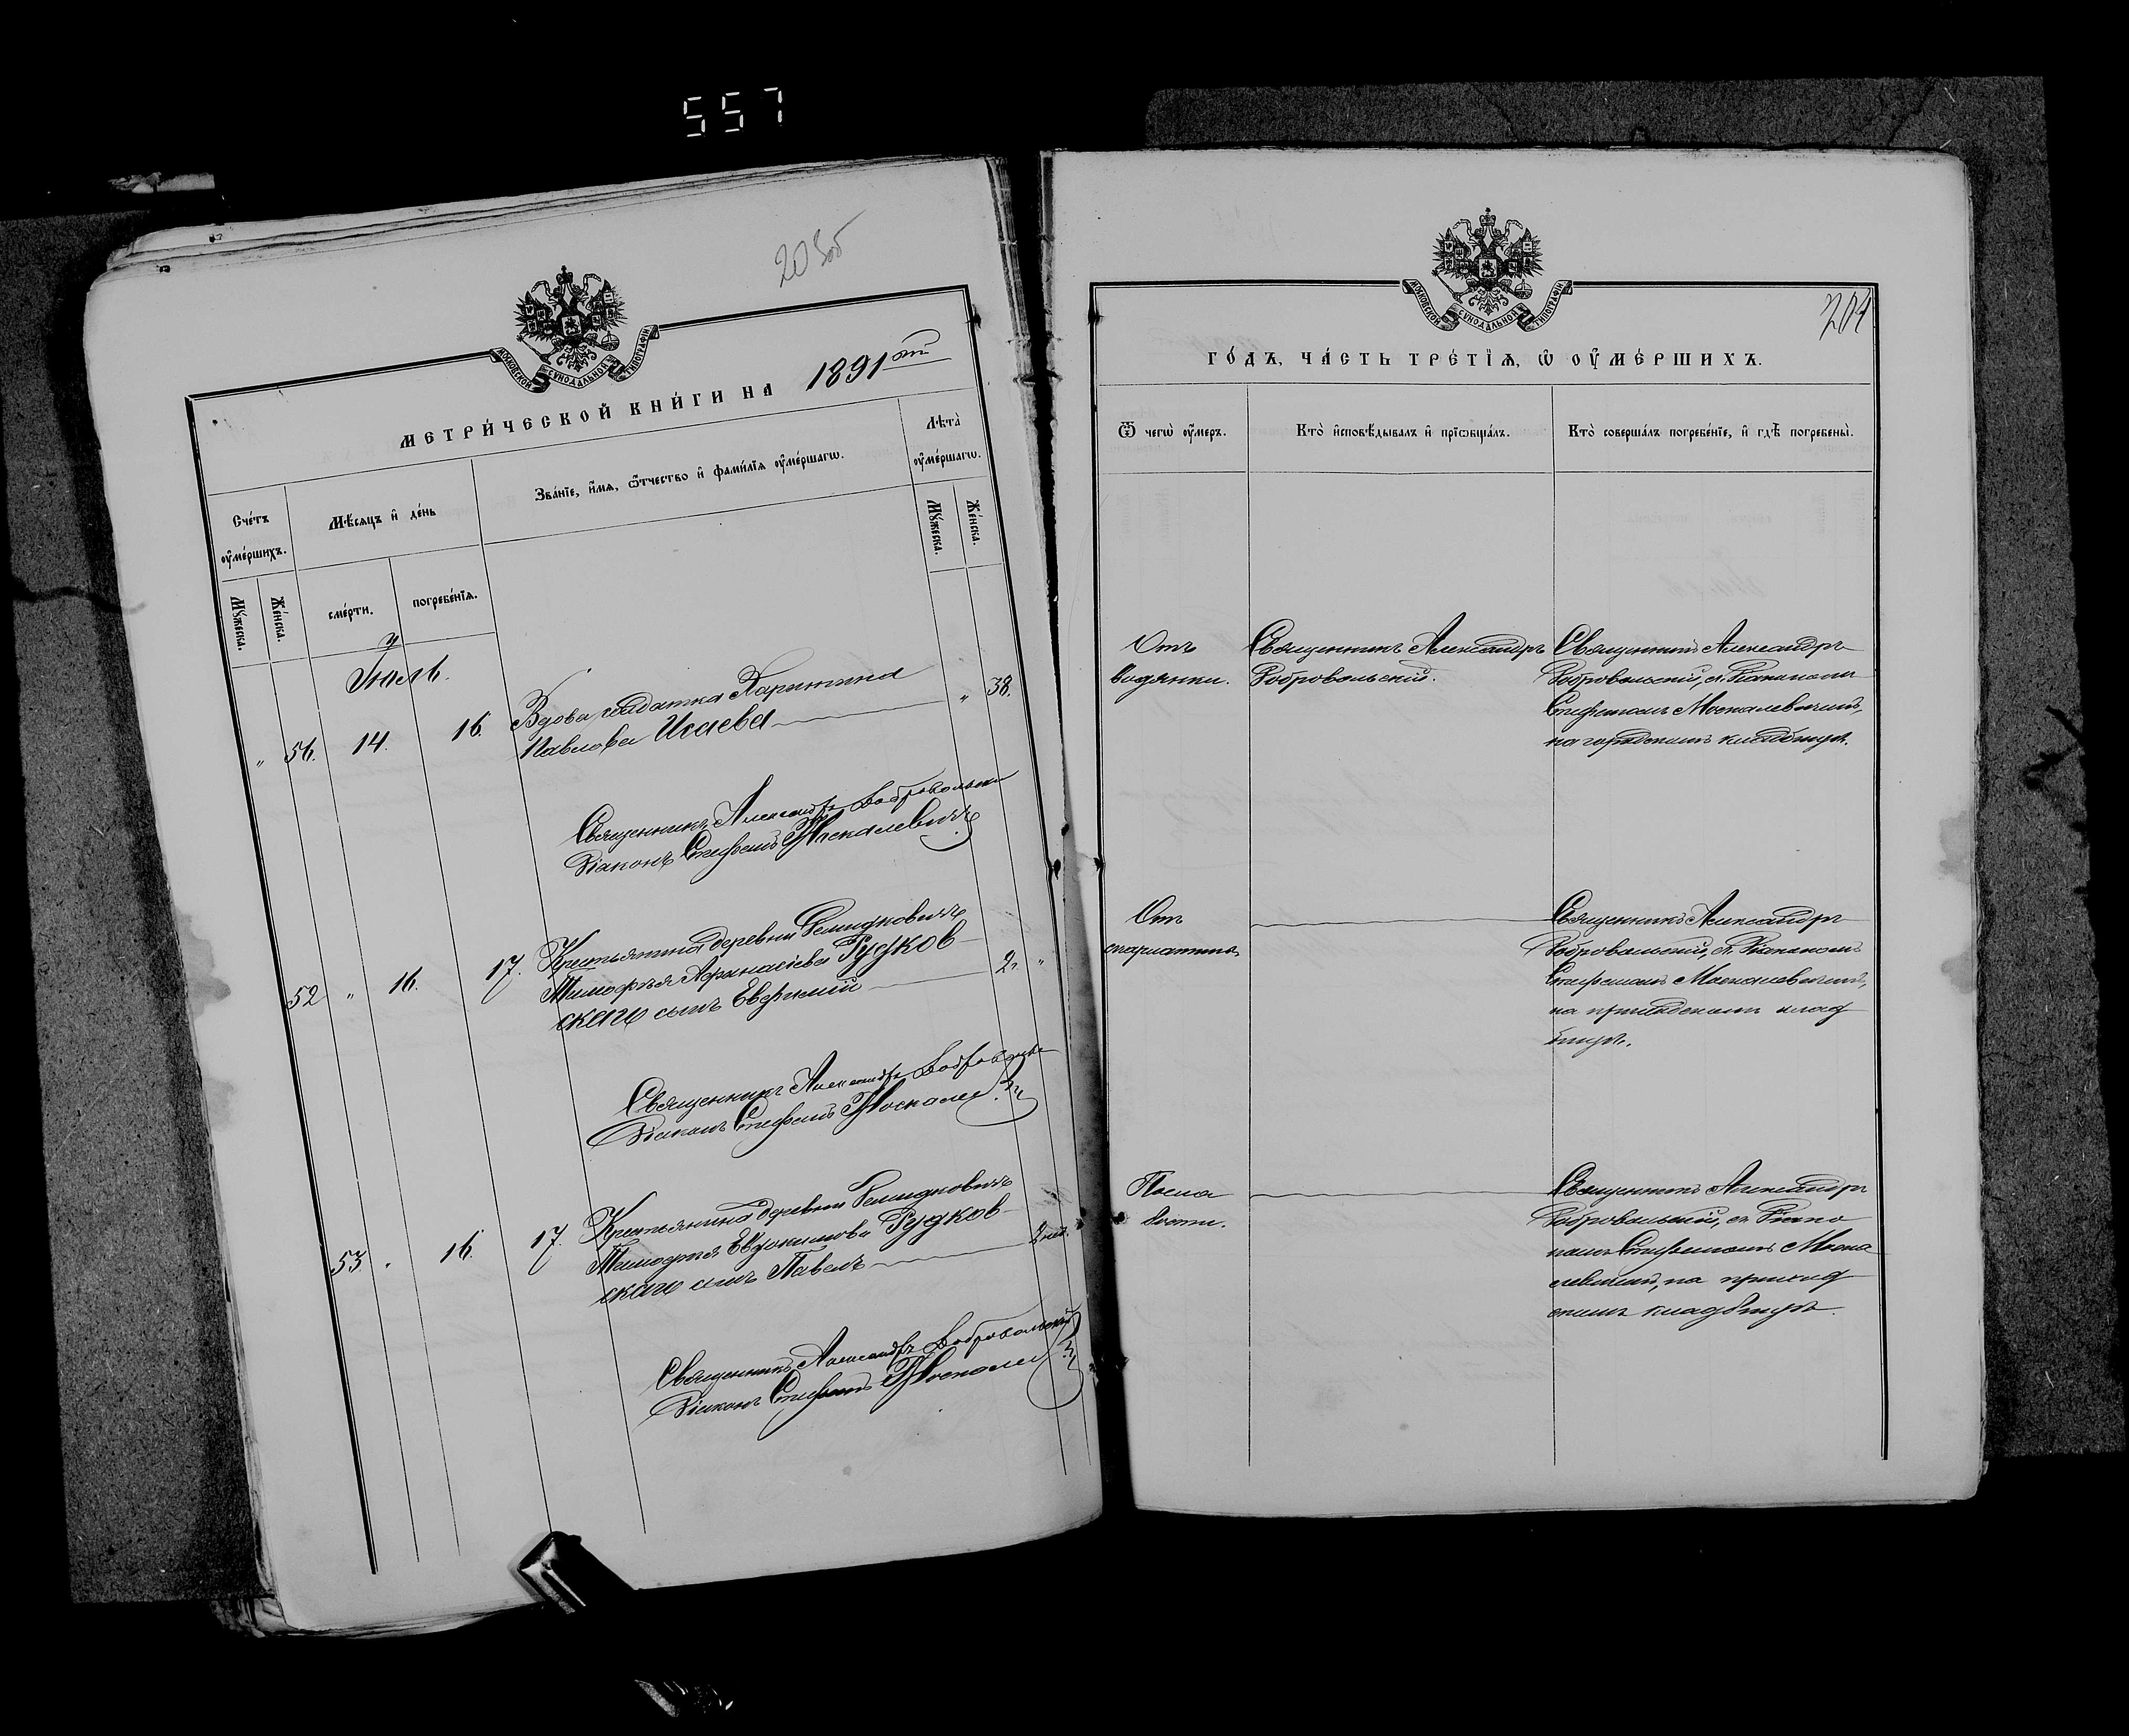 557
203об
МОСКОВСКОЙ СУНОДАЛЬНОЙ ТИПОГРАФІИ
МЕТРИ́ЧЕСКОЙ КНИ́ГИ НА 1891ый
Сче́тъ ᲂу҆ме́ршихъ.
Мѣ́сѧцъ и҆ де́нь
Зва́нїе, и҆́мѧ, ѻ҆́тчество и҆ фамѝлїѧ ᲂу҆ме́ршагѡ.
Лѣ́та ᲂу҆ме́ршагѡ.
Мꙋ́жеска.
Же́нска.
сме́рти.
погребе́нїѧ.
Мꙋ́жеска.
Же́нска.
Іюль.
" 56. 14. 16. Вдова солдатка Харитина " 38.
Павлова Исаева
Священникъ Александръ Добровольскі
Діаконъ Стефанъ Москалевичъ
52 " 16. 17. Крестьянина деревни
Тимофея Афанасіева Рудков- 2г. "
скаго сынъ Евфимій
Священникъ Александръ
Діаконъ Стефанъ
53. " 16. 17. Крестьянина деревни
Тимофея Евдокимова Рудков-
скаго сынъ Павелъ
Священникъ Александръ Добровольскій
Діаконъ Стефанъ
МОСКОВСКОЙ СУНОДАЛЬНОЙ ТИПОГРАФІИ
204
ГО́ДЪ, ЧА́СТЬ ТРЕ́ТЇѦ, Ѡ҆ ОУ҆МЕ́РШИХЪ.
Ѿ чегѡ̀ ᲂу҆́меръ.
Кто̀ и҆сповѣ́дывалъ и҆ прїѡбща́лъ.
Кто̀ соверша́лъ погребе́нїе, и҆ гдѣ̀ погребены̀.
Отъ
водянки.
Священникъ Александръ
Добровольскій.
Священникъ Александръ
Добровольскій, съ Діакономъ
Стефаномъ Москалевичемъ,
на городскомъ кладбищѣ.
Отъ
скарлатины
Священникъ Александръ
Добровольскій, съ Діакономъ
Стефаномъ Москалевичемъ,
на приходскомъ клад
бищѣ.
Священникъ Александръ
Добровольскій, съ Діако
номъ Стефаномъ Моска
левичемъ, на приход
скомъ кладбищѣ.